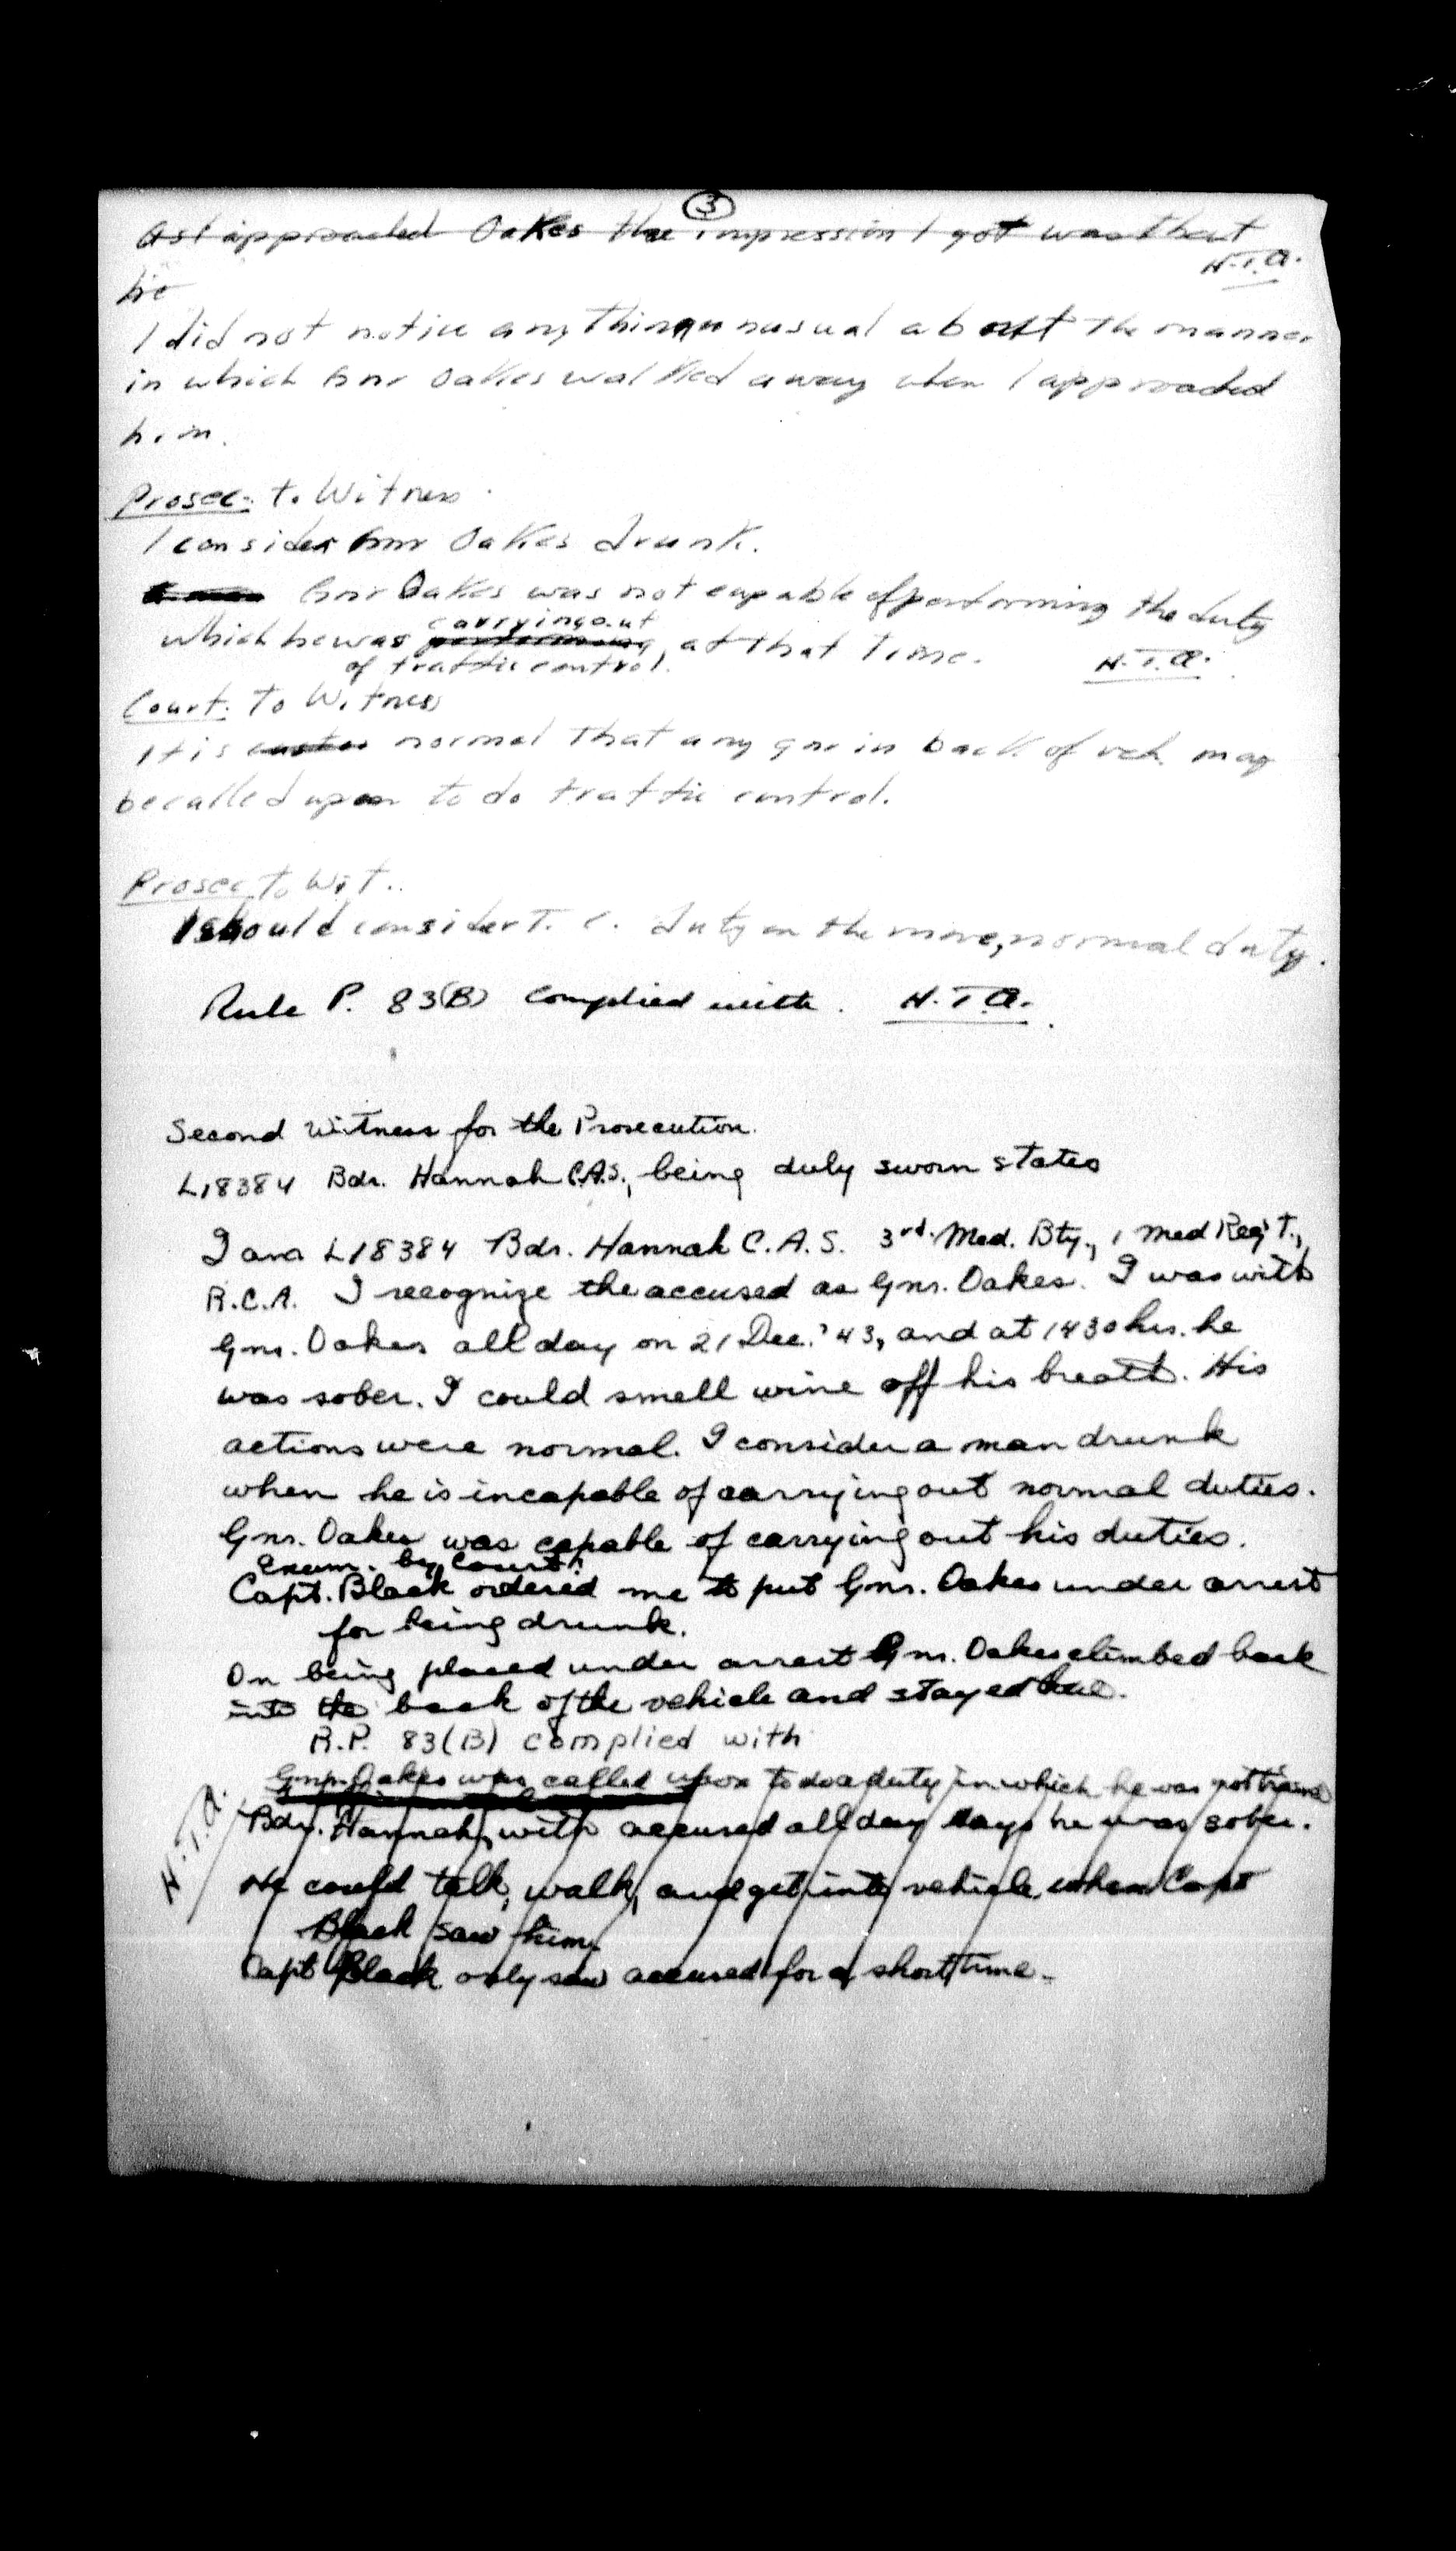 3
As I approached Oakes the impression I got was that
H.T.A.
he
I did not notice anything unusual about the manner
in which Gnr Oakes walked away when I approached
him.
Prosec: to Witness.
I consider Gnr Oakes drunk.
Gnr Oakes was not capable of performing the duty
carrying out
which he was performing, at that time.
of traffic control.
H.T.A.
Court: To Witness
It is normal that any gnr in back of veh. may
be called upon to do traffic control.
Prosec to Wit..
I should consider T. C. duty on the move, normal duty.
Rule P. 83(B) complied with. H.T.A.
Second Witness for the Prosecution.
L18384 Bdr. Hannah C.A.S., being duly sworn states
I am L18384 Bdr. Hannah C.A.S. 3rd. Med. Bty., 1 Med Reg't.,
R.C.A. I recognize the accused as Gnr. Oakes. I was with
Gnr. Oakes all day on 21 Dec. '43, and at 1430 hrs. he
was sober. I could smell wine off his breath. His
actions were normal. I consider a man drunk
when he is incapable of carrying out normal duties.
Gnr. Oakes was capable of carrying out his duties.
Exam. by Court:
Capt. Black ordered me to put Gnr. Oakes under arrest
for being drunk.
On being placed under arrest Gnr. Oakes climbed back
into the back of the vehicle and stayed
R.P. 83(B) complied with
Gnr. Oakes was called upon to do a duty in which he was not trained
H.T.A.
Bdr. Hannah, with accused all day says he was sober.
He could talk, walk, and get into vehicle when Capt
Black saw him.
Capt Black only saw accused for a short time.